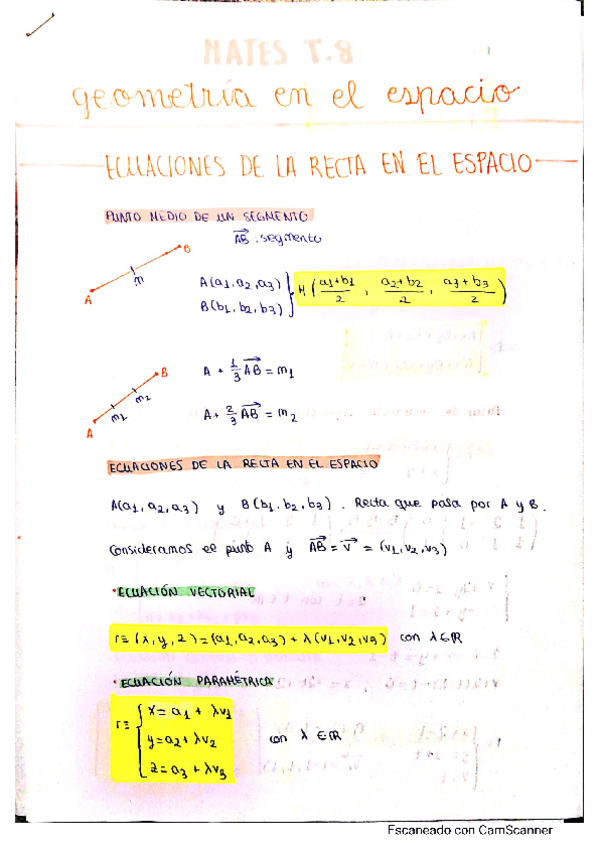 MATES T.8
geometría en el espacio
ECUACIONES DE LA RECTA EN EL ESPACIO
PUNTO MEDIO DE UN SEGMENTO
AB⃗ . segmento
B
m
A
A(a₁, a₂, a₃)
B(b₁, b₂, b₃)
M (a₁+b₁/2 , a₂+b₂/2 , a₃+b₃/2)
B
m₂
m₂
A
A + 1/3 AB⃗ = m₁
A + 2/3 AB⃗ = m₂
ECUACIONES DE LA RECTA EN EL ESPACIO
A(a₁, a₂, a₃) y B(b₁, b₂, b₃). Recta que pasa por A y B.
Consideramos el punto A y AB⃗ = v⃗ = (v₁, v₂, v₃)
· ECUACIÓN VECTORIAL
r ≡ (x, y, z) = (a₁, a₂, a₃) + λ(v₁, v₂, v₃) con λ ∈ ℝ
· ECUACIÓN PARAMÉTRICA
r ≡ { x = a₁ + λv₁
y = a₂ + λv₂ con λ ∈ ℝ
z = a₃ + λv₃
Escaneado con CamScanner